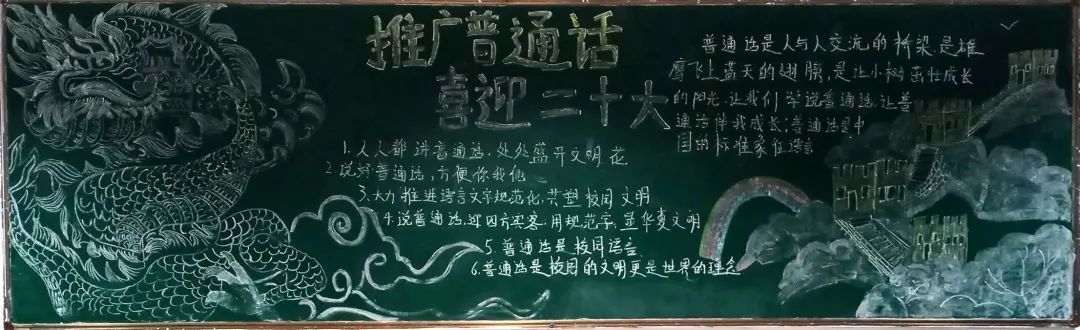 推广普通话
喜迎二十大
1.人人都讲普通话,处处盛开文明花
2.说好普通话,方便你我他
3.大力推进语言文字规范化,共塑校园文明
4.说普通话,迎四方宾客,用规范字,显华夏文明
5.普通话是校园语言
6.普通话是校园的文明更是世界的理念
普通话是人与人交流的桥梁是雄
鹰飞上蓝天的翅膀,是让小树茁壮成长
的阳光.让我们学说普通话,让普
通话伴我成长;普通话是中
国的标准家在语言